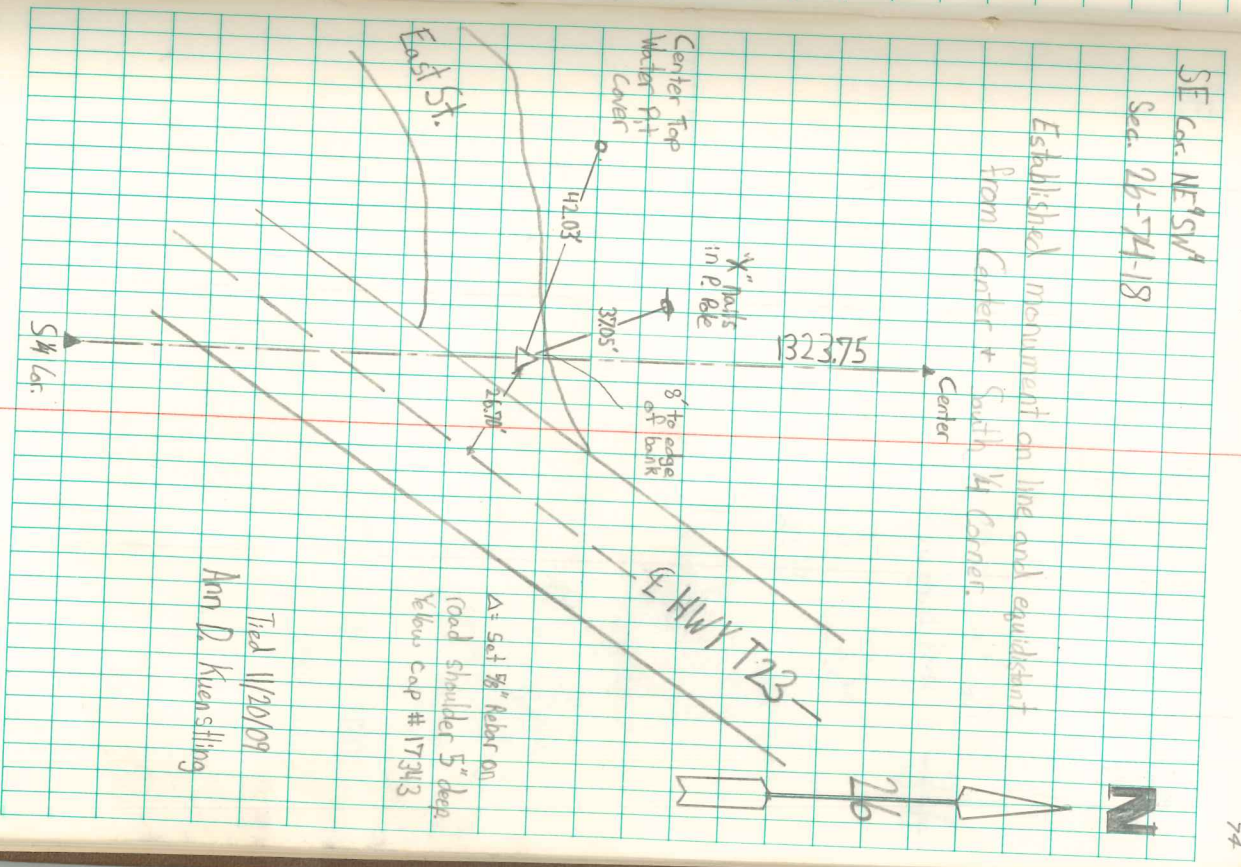 74
N
26
SE Cor. NE¼SW¼
Sec. 26-74-18
Established monument on line and equidistant
from Center + South ¼ Corner.
Center
1323.75
"X" Nails
in P. Pole
8' to edge
of bank
Center Top
Water Pit
Cover
37.05'
42.03'
26.70'
East St.
℄ HWY T23
S¼ Cor.
Δ = Set ⅝" Rebar on
road shoulder 5" deep
Yellow cap # 17343
Tied 11/20/09
Ann D. Kuensling